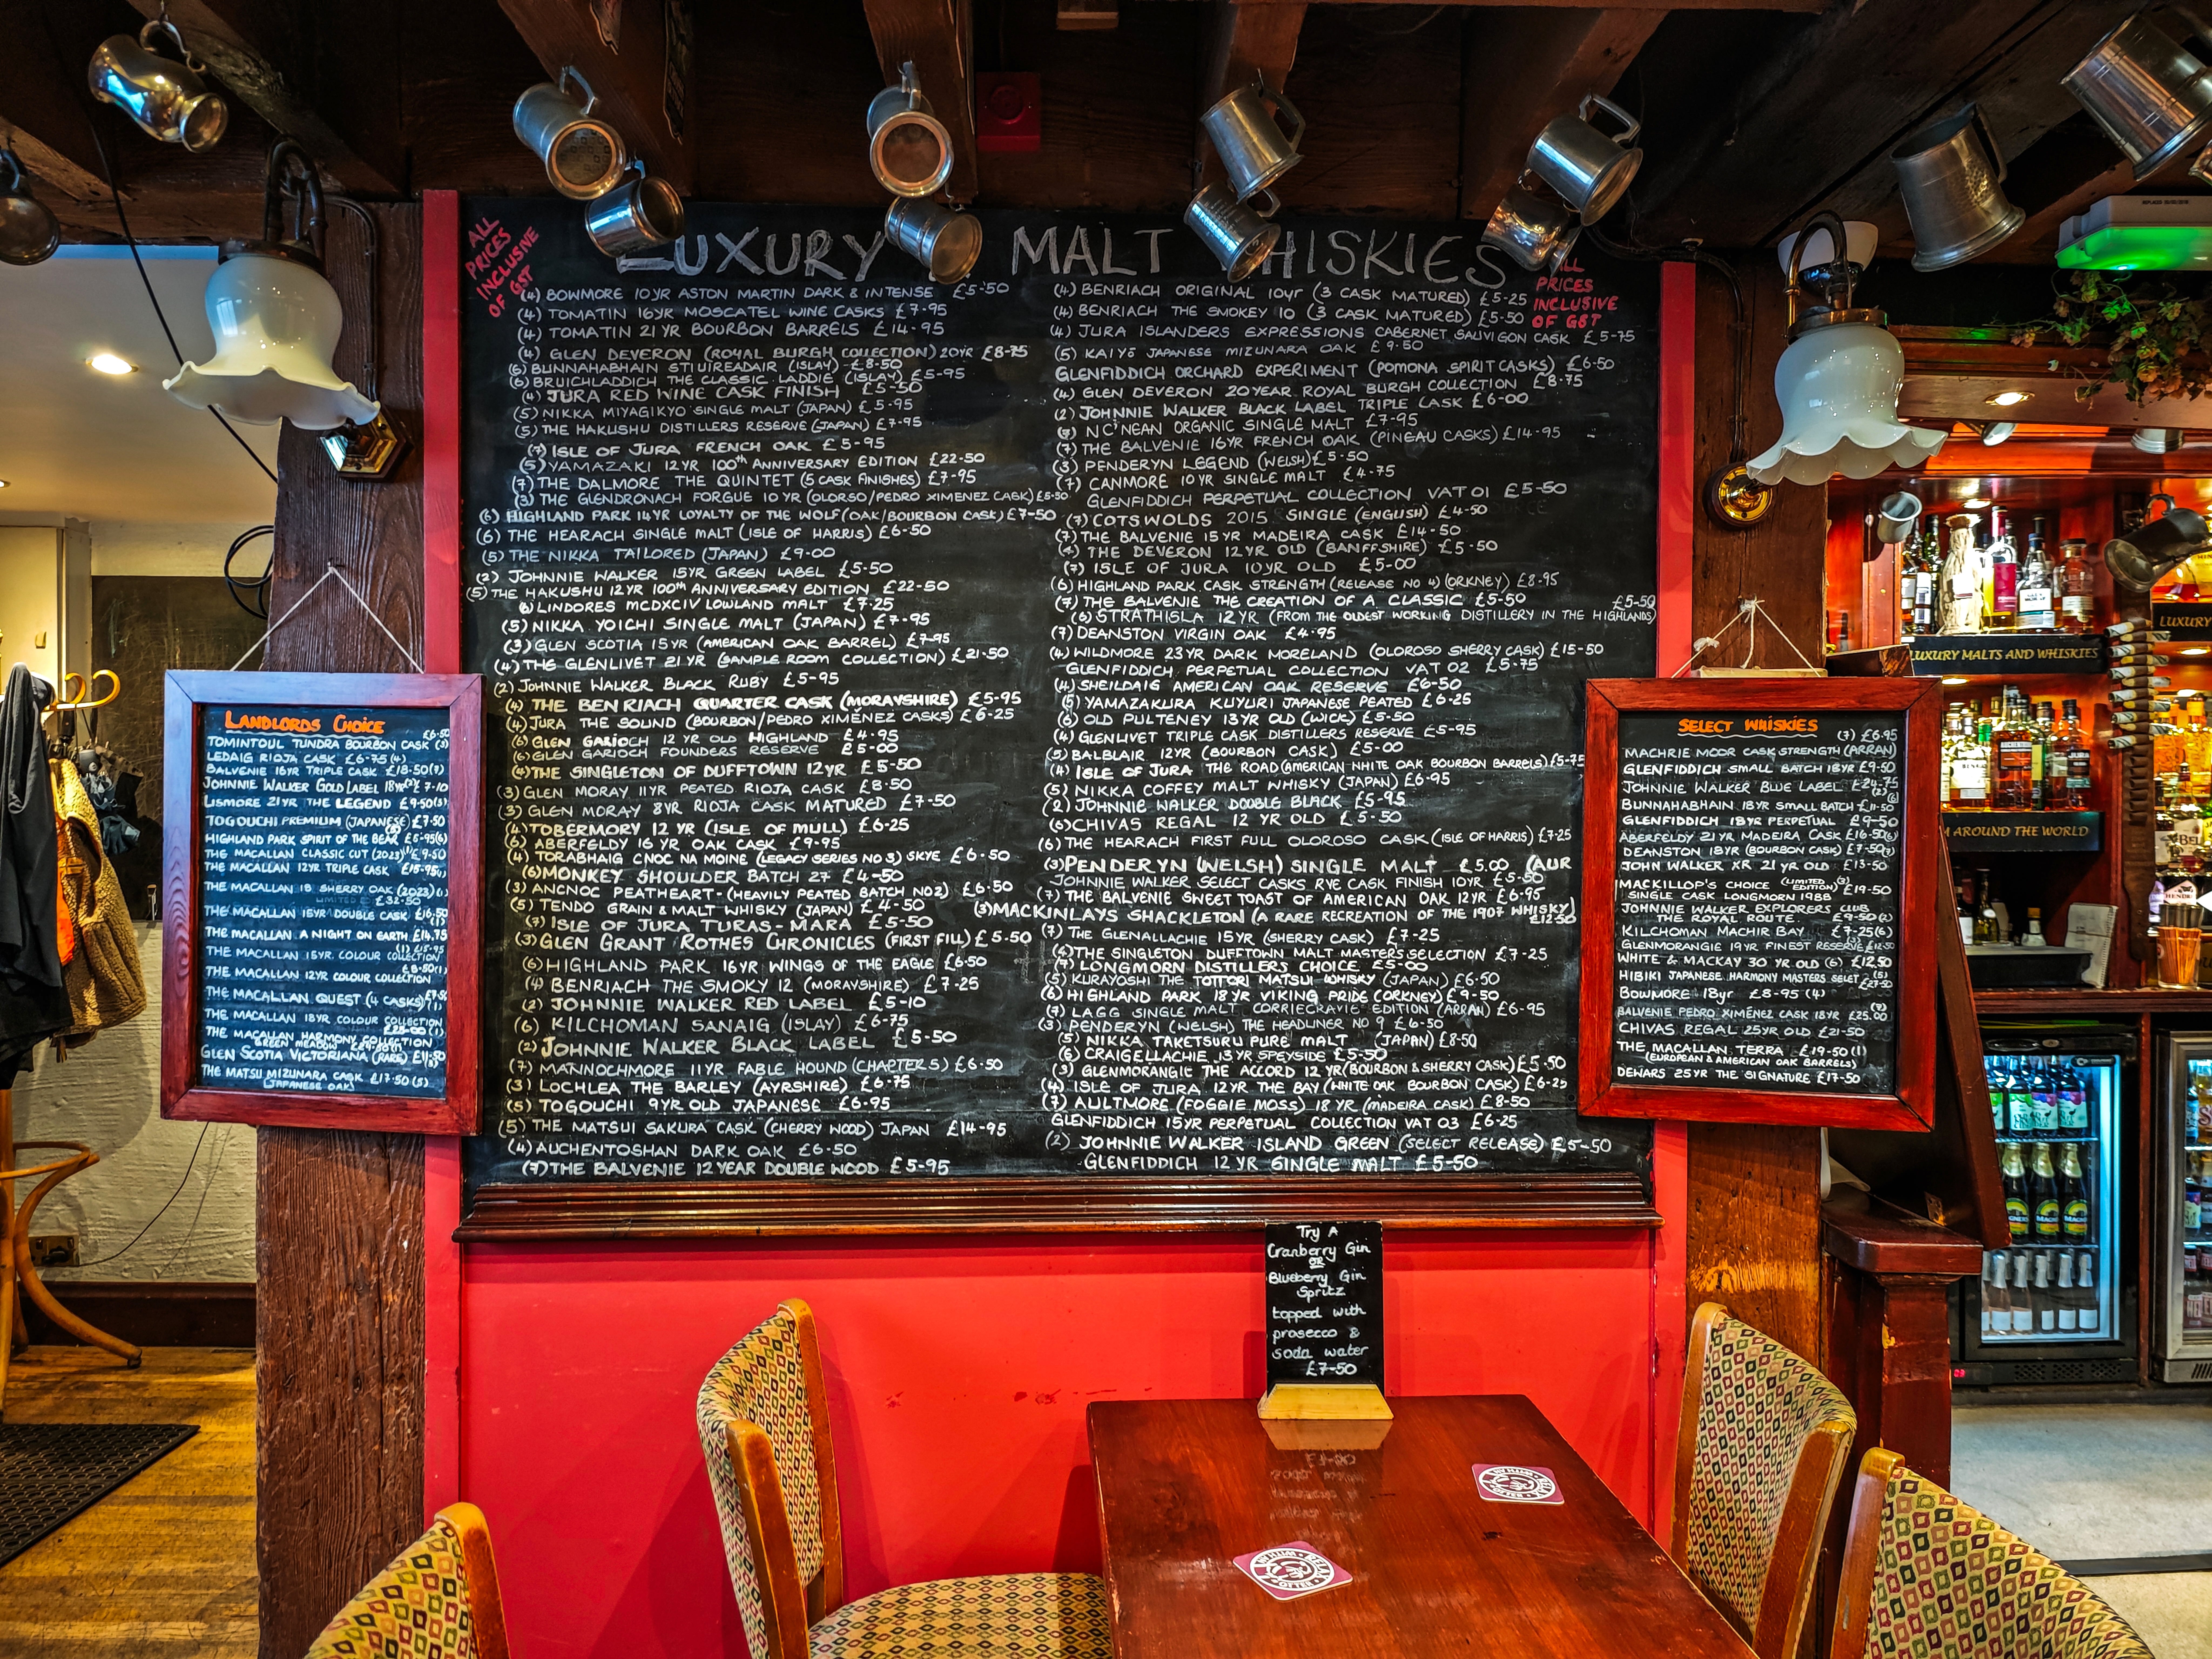 ALL
PRICES
INCLUSIVE
OF GST
LUXURY MALT WHISKIES
(4) BOWMORE 10YR ASTON MARTIN DARK & INTENSE £5-50
(4) TOMATIN 16YR MOSCATEL WINE CASKS £7-95
(4) TOMATIN 21YR BOURBON BARRELS £14-95
(4) GLEN DEVERON (ROYAL BURGH COLLECTION) 20YR £8-75
(6) BUNNAHABHAIN STIUIREADAIR (ISLAY) £8-50
(6) BRUICHLADDICH THE CLASSIC LADDIE (ISLAY) £5-95
(4) JURA RED WINE CASK FINISH £5-50
(5) NIKKA MIYAGIKYO SINGLE MALT (JAPAN) £5-95
(5) THE HAKUSHU DISTILLERS RESERVE (JAPAN) £7-95
(7) ISLE OF JURA FRENCH OAK £5-95
(5) YAMAZAKI 12YR 100th ANNIVERSARY EDITION £22-50
(7) THE DALMORE THE QUINTET (5 CASK FINISHES) £7-95
(3) THE GLENDRONACH FORGUE 10YR (OLORSO/PEDRO XIMENEZ CASK) £5-50
(6) HIGHLAND PARK 14YR LOYALTY OF THE WOLF (OAK/BOURBON CASK) £7-50
(6) THE HEARACH SINGLE MALT (ISLE OF HARRIS) £6-50
(5) THE NIKKA TAILORED (JAPAN) £9-00
(2) JOHNNIE WALKER 15YR GREEN LABEL £5-50
(5) THE HAKUSHU 12YR 100th ANNIVERSARY EDITION £22-50
(6) LINDORES MCDXCIV LOWLAND MALT £7-25
(5) NIKKA YOICHI SINGLE MALT (JAPAN) £7-95
(3) GLEN SCOTIA 15YR (AMERICAN OAK BARREL) £7-95
(4) THE GLENLIVET 21YR (SAMPLE ROOM COLLECTION) £21-50
(2) JOHNNIE WALKER BLACK RUBY £5-95
(4) THE BENRIACH QUARTER CASK (MORAYSHIRE) £5-95
(4) JURA THE SOUND (BOURBON/PEDRO XIMÉNEZ CASKS) £6-25
(6) GLEN GARIOCH 12 YR OLD HIGHLAND £4-95
(6) GLEN GARIOCH FOUNDERS RESERVE £5-00
(4) THE SINGLETON OF DUFFTOWN 12YR £5-50
(3) GLEN MORAY 11YR PEATED RIOJA CASK £8-50
(3) GLEN MORAY 8YR RIOJA CASK MATURED £7-50
(4) TOBERMORY 12 YR (ISLE OF MULL) £6-25
(6) ABERFELDY 16 YR OAK CASK £9-95
(4) TORABHAIG CNOC NA MOINE (LEGACY SERIES NO 3) SKYE £6-50
(6) MONKEY SHOULDER BATCH 27 £4-50
(3) ANCNOC PEATHEART-(HEAVILY PEATED BATCH NO2) £6-50
(5) TENDO GRAIN & MALT WHISKY (JAPAN) £4-50
(7) ISLE OF JURA TURAS-MARA £5-50
(3) GLEN GRANT ROTHES CHRONICLES (FIRST FILL) £5-50
(6) HIGHLAND PARK 16YR WINGS OF THE EAGLE £6-50
(4) BENRIACH THE SMOKY 12 (MORAYSHIRE) £7-25
(2) JOHNNIE WALKER RED LABEL £5-10
(6) KILCHOMAN SANAIG (ISLAY) £6-75
(2) JOHNNIE WALKER BLACK LABEL £5-50
(7) MANNOCHMORE 11YR FABLE HOUND (CHAPTER 5) £6-50
(3) LOCHLEA THE BARLEY (AYRSHIRE) £6-75
(5) TOGOUCHI 9YR OLD JAPANESE £6-95
(5) THE MATSUI SAKURA CASK (CHERRY WOOD) JAPAN £14-95
(4) AUCHENTOSHAN DARK OAK £6-50
(7) THE BALVENIE 12 YEAR DOUBLE WOOD £5-95
(4) BENRIACH ORIGINAL 10yr (3 CASK MATURED) £5-25
(4) BENRIACH THE SMOKEY 10 (3 CASK MATURED) £5-50
(4) JURA ISLANDERS EXPRESSIONS CABERNET SAUVIGON CASK £5-75
(5) KAIYŌ JAPANESE MIZUNARA OAK £9-50
GLENFIDDICH ORCHARD EXPERIMENT (POMONA SPIRIT CASKS) £6-50
(4) GLEN DEVERON 20 YEAR ROYAL BURGH COLLECTION £8-75
(2) JOHNNIE WALKER BLACK LABEL TRIPLE CASK £6-00
(7) NC'NEAN ORGANIC SINGLE MALT £7-95
(7) THE BALVENIE 16YR FRENCH OAK (PINEAU CASKS) £14-95
(3) PENDERYN LEGEND (WELSH) £5-50
(7) CANMORE 10YR SINGLE MALT £4-75
GLENFIDDICH PERPETUAL COLLECTION VAT 01 £5-50
(7) COTSWOLDS 2015 SINGLE (ENGLISH) £4-50
(7) THE BALVENIE 15YR MADEIRA CASK £14-50
(4) THE DEVERON 12YR OLD (BANFFSHIRE) £5-50
(7) ISLE OF JURA 10YR OLD £5-00
(6) HIGHLAND PARK CASK STRENGTH (RELEASE NO 4) (ORKNEY) £8-95
(7) THE BALVENIE THE CREATION OF A CLASSIC £5-50
(6) STRATHISLA 12YR (FROM THE OLDEST WORKING DISTILLERY IN THE HIGHLANDS) £5-50
(7) DEANSTON VIRGIN OAK £4-95
(4) WILDMORE 23YR DARK MORELAND (OLOROSO SHERRY CASK) £15-50
GLENFIDDICH PERPETUAL COLLECTION VAT 02 £5-75
(4) SHEILDAIG AMERICAN OAK RESERVE £6-50
(5) YAMAZAKURA KUYURI JAPANESE PEATED £6-25
(6) OLD PULTENEY 13YR OLD (WICK) £5-50
(4) GLENLIVET TRIPLE CASK DISTILLERS RESERVE £5-95
(5) BALBLAIR 12YR (BOURBON CASK) £5-00
(4) ISLE OF JURA THE ROAD (AMERICAN WHITE OAK BOURBON BARRELS) £5-75
(5) NIKKA COFFEY MALT WHISKY (JAPAN) £6-95
(2) JOHNNIE WALKER DOUBLE BLACK £5-95
(6) CHIVAS REGAL 12 YR OLD £5-50
(6) THE HEARACH FIRST FULL OLOROSO CASK (ISLE OF HARRIS) £7-25
(3) PENDERYN (WELSH) SINGLE MALT £5.00 (AUR
JOHNNIE WALKER SELECT CASKS RYE CASK FINISH 10YR £5-50
(7) THE BALVENIE SWEET TOAST OF AMERICAN OAK 12YR £6-95
(3) MACKINLAYS SHACKLETON (A RARE RECREATION OF THE 1907 WHISKY) £12-50
(7) THE GLENALLACHIE 15YR (SHERRY CASK) £7-25
(4) THE SINGLETON DUFFTOWN MALT MASTERS SELECTION £7-25
(7) LONGMORN DISTILLERS CHOICE £5-00
(5) KURAYOSHI THE TOTTORI MATSUI WHISKY (JAPAN) £6-50
(6) HIGHLAND PARK 18YR VIKING PRIDE (ORKNEY) £9-50
(7) LAGG SINGLE MALT CORRIECRAVIE EDITION (ARRAN) £6-95
(3) PENDERYN (WELSH) THE HEADLINER NO 9 £6-50
(5) NIKKA TAKETSURU PURE MALT (JAPAN) £8-50
(6) CRAIGELLACHIE 13YR SPEYSIDE £5-50
(3) GLENMORANGIE THE ACCORD 12 YR (BOURBON & SHERRY CASK) £5-50
(4) ISLE OF JURA 12YR THE BAY (WHITE OAK BOURBON CASK) £6-25
(7) AULTMORE (FOGGIE MOSS) 18 YR (MADEIRA CASK) £8-50
GLENFIDDICH 15YR PERPETUAL COLLECTION VAT 03 £6-25
(2) JOHNNIE WALKER ISLAND GREEN (SELECT RELEASE) £5-50
GLENFIDDICH 12 YR SINGLE MALT £5-50
ALL
PRICES
INCLUSIVE
OF GST
LANDLORDS CHOICE
£6-50
TOMINTOUL TUNDRA BOURBON CASK (3)
LEDAIG RIOJA CASK £6-75 (4)
BALVENIE 16YR TRIPLE CASK £18-50 (7)
JOHNNIE WALKER GOLD LABEL 18YR (2) £7-10
LISMORE 21YR THE LEGEND £9-50 (5)
TOGOUCHI PREMIUM (JAPANESE) £7-50
HIGHLAND PARK SPIRIT OF THE BEAR £5-95 (6)
THE MACALLAN CLASSIC CUT (2023) £9-50
THE MACALLAN 12YR TRIPLE CASK £15-95
THE MACALLAN 18 SHERRY OAK (2023) (1)
LIMITED £32-50
THE MACALLAN 15YR DOUBLE CASK £16-50
THE MACALLAN A NIGHT ON EARTH £14.75
THE MACALLAN 15YR. COLOUR COLLECTION (1) £15-95
THE MACALLAN 12YR COLOUR COLLECTION £8-50 (1)
THE MACALLAN QUEST (4 CASKS) £7-50
THE MACALLAN 18YR COLOUR COLLECTION £28-00 (1)
THE MACALLAN HARMONY COLLECTION
GREEN MEADOW
GLEN SCOTIA VICTORIANA (RARE) £11-50
THE MATSU MIZUNARA CASK £17-50 (5)
(JAPANESE OAK)
SELECT WHISKIES
(7) £6.95
MACHRIE MOOR CASK STRENGTH (ARRAN)
GLENFIDDICH SMALL BATCH 18YR £9-50
JOHNNIE WALKER BLUE LABEL £24-75
BUNNAHABHAIN 18YR SMALL BATCH £11-50
GLENFIDDICH 18YR PERPETUAL £9-50
ABERFELDY 21YR MADEIRA CASK £16-50 (6)
DEANSTON 18YR (BOURBON CASK) £7-50
JOHN WALKER XR 21 YR OLD £13-50
MACKILLOP'S CHOICE (LIMITED EDITION) (3) £19-50
SINGLE CASK LONGMORN 1988
JOHNNIE WALKER EXPLORERS CLUB
THE ROYAL ROUTE. £9-50 (2)
KILCHOMAN MACHIR BAY £7-25 (6)
GLENMORANGIE 19YR FINEST RESERVE £12-50
WHITE & MACKAY 30 YR OLD (6) £12.50
HIBIKI JAPANESE HARMONY MASTERS SELET (5) £27-50
BOWMORE 18yr £8-95 (4)
BALVENIE PEDRO XIMÉNEZ CASK 18YR £25.00 (7)
CHIVAS REGAL 25YR OLD £21-50
THE MACALLAN TERRA £19-50 (1)
(EUROPEAN & AMERICAN OAK BARRELS)
DEWARS 25YR THE SIGNATURE £17-50
LUXURY MALTS AND WHISKIES
LUXURY
AROUND THE WORLD
Try A
Cranberry Gin
OR
Blueberry Gin
Spritz
topped with
prosecco &
soda water
£7-50